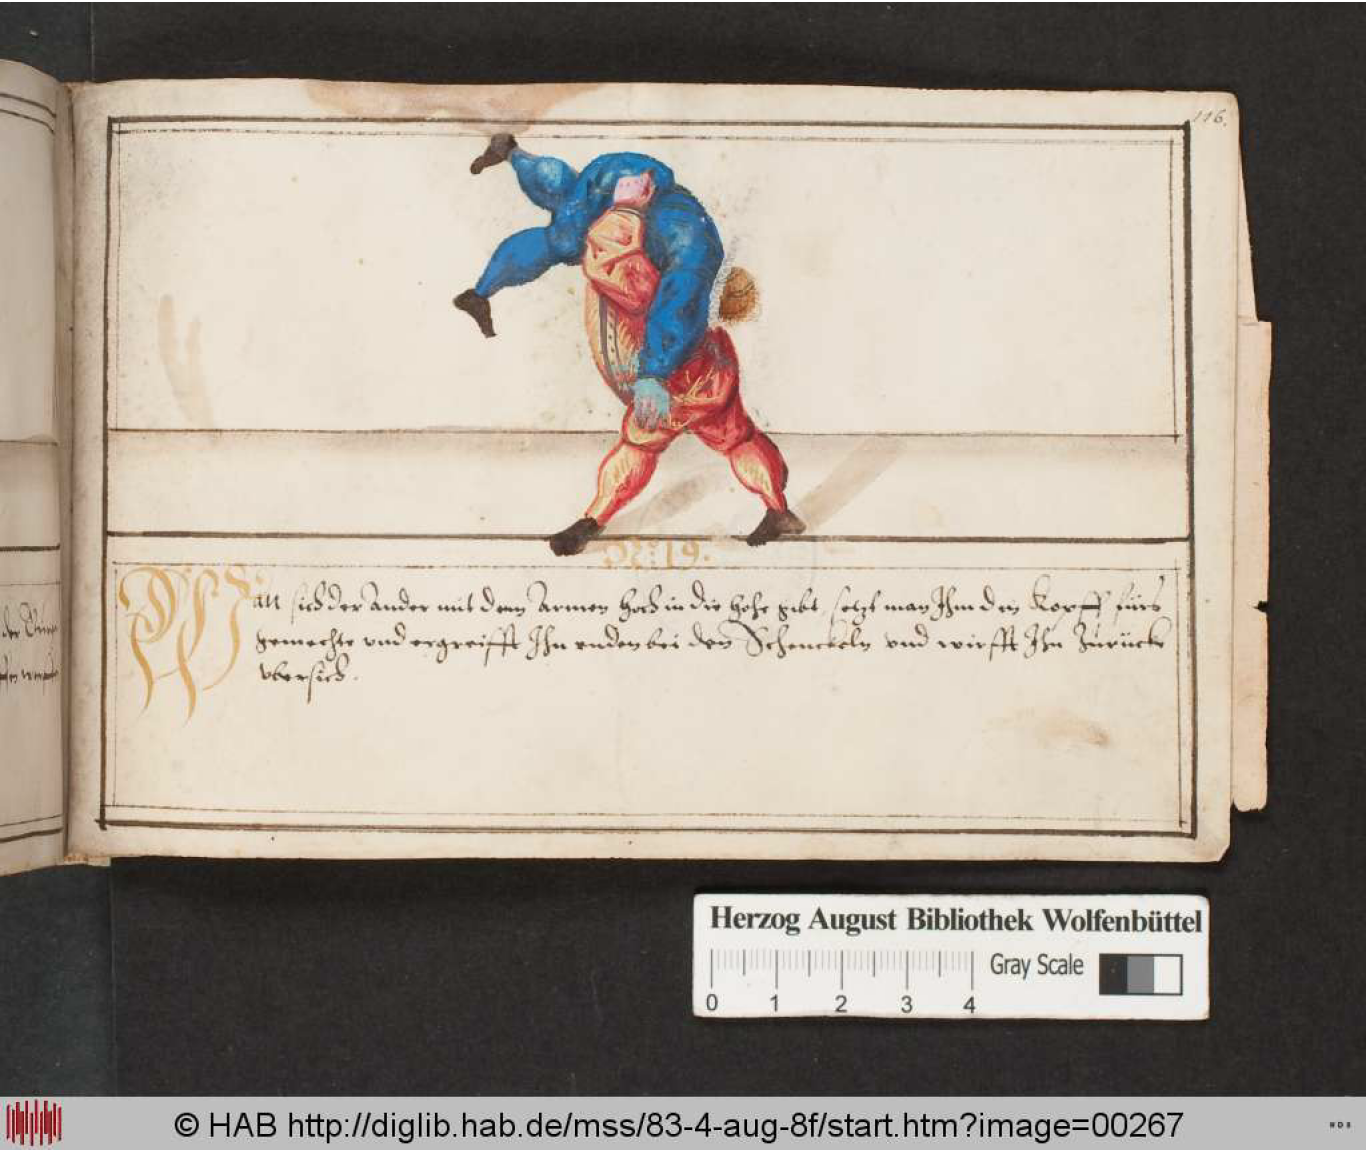 116.
N: 19.
Wan sich der Ander mit dem Armen hoch in die höhe gibt, setzt man Ihm den Kopff fürs
gemechte und ergreifft Ihn unden bei den Schenckeln und wirfft Ihn Zurücke
vbersich.
der
Herzog August Bibliothek Wolfenbüttel
Gray Scale
0 1 2 3 4
© HAB http://diglib.hab.de/mss/83-4-aug-8f/start.htm?image=00267